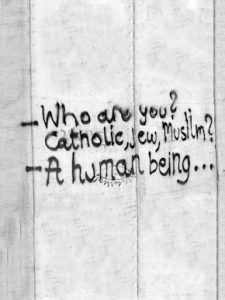 - Who are you?
Catholic, Jew, Muslim?
- A human being...